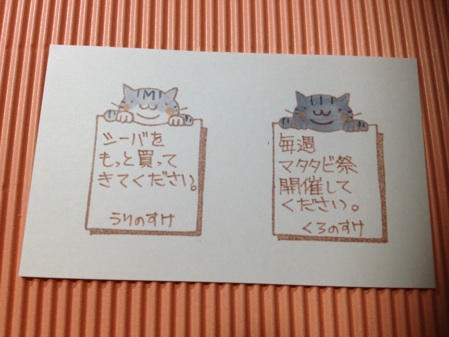 シーバを
もっと買って
きてください。
うりのすけ
毎週
マタタビ祭
開催して
ください。
くろのすけ